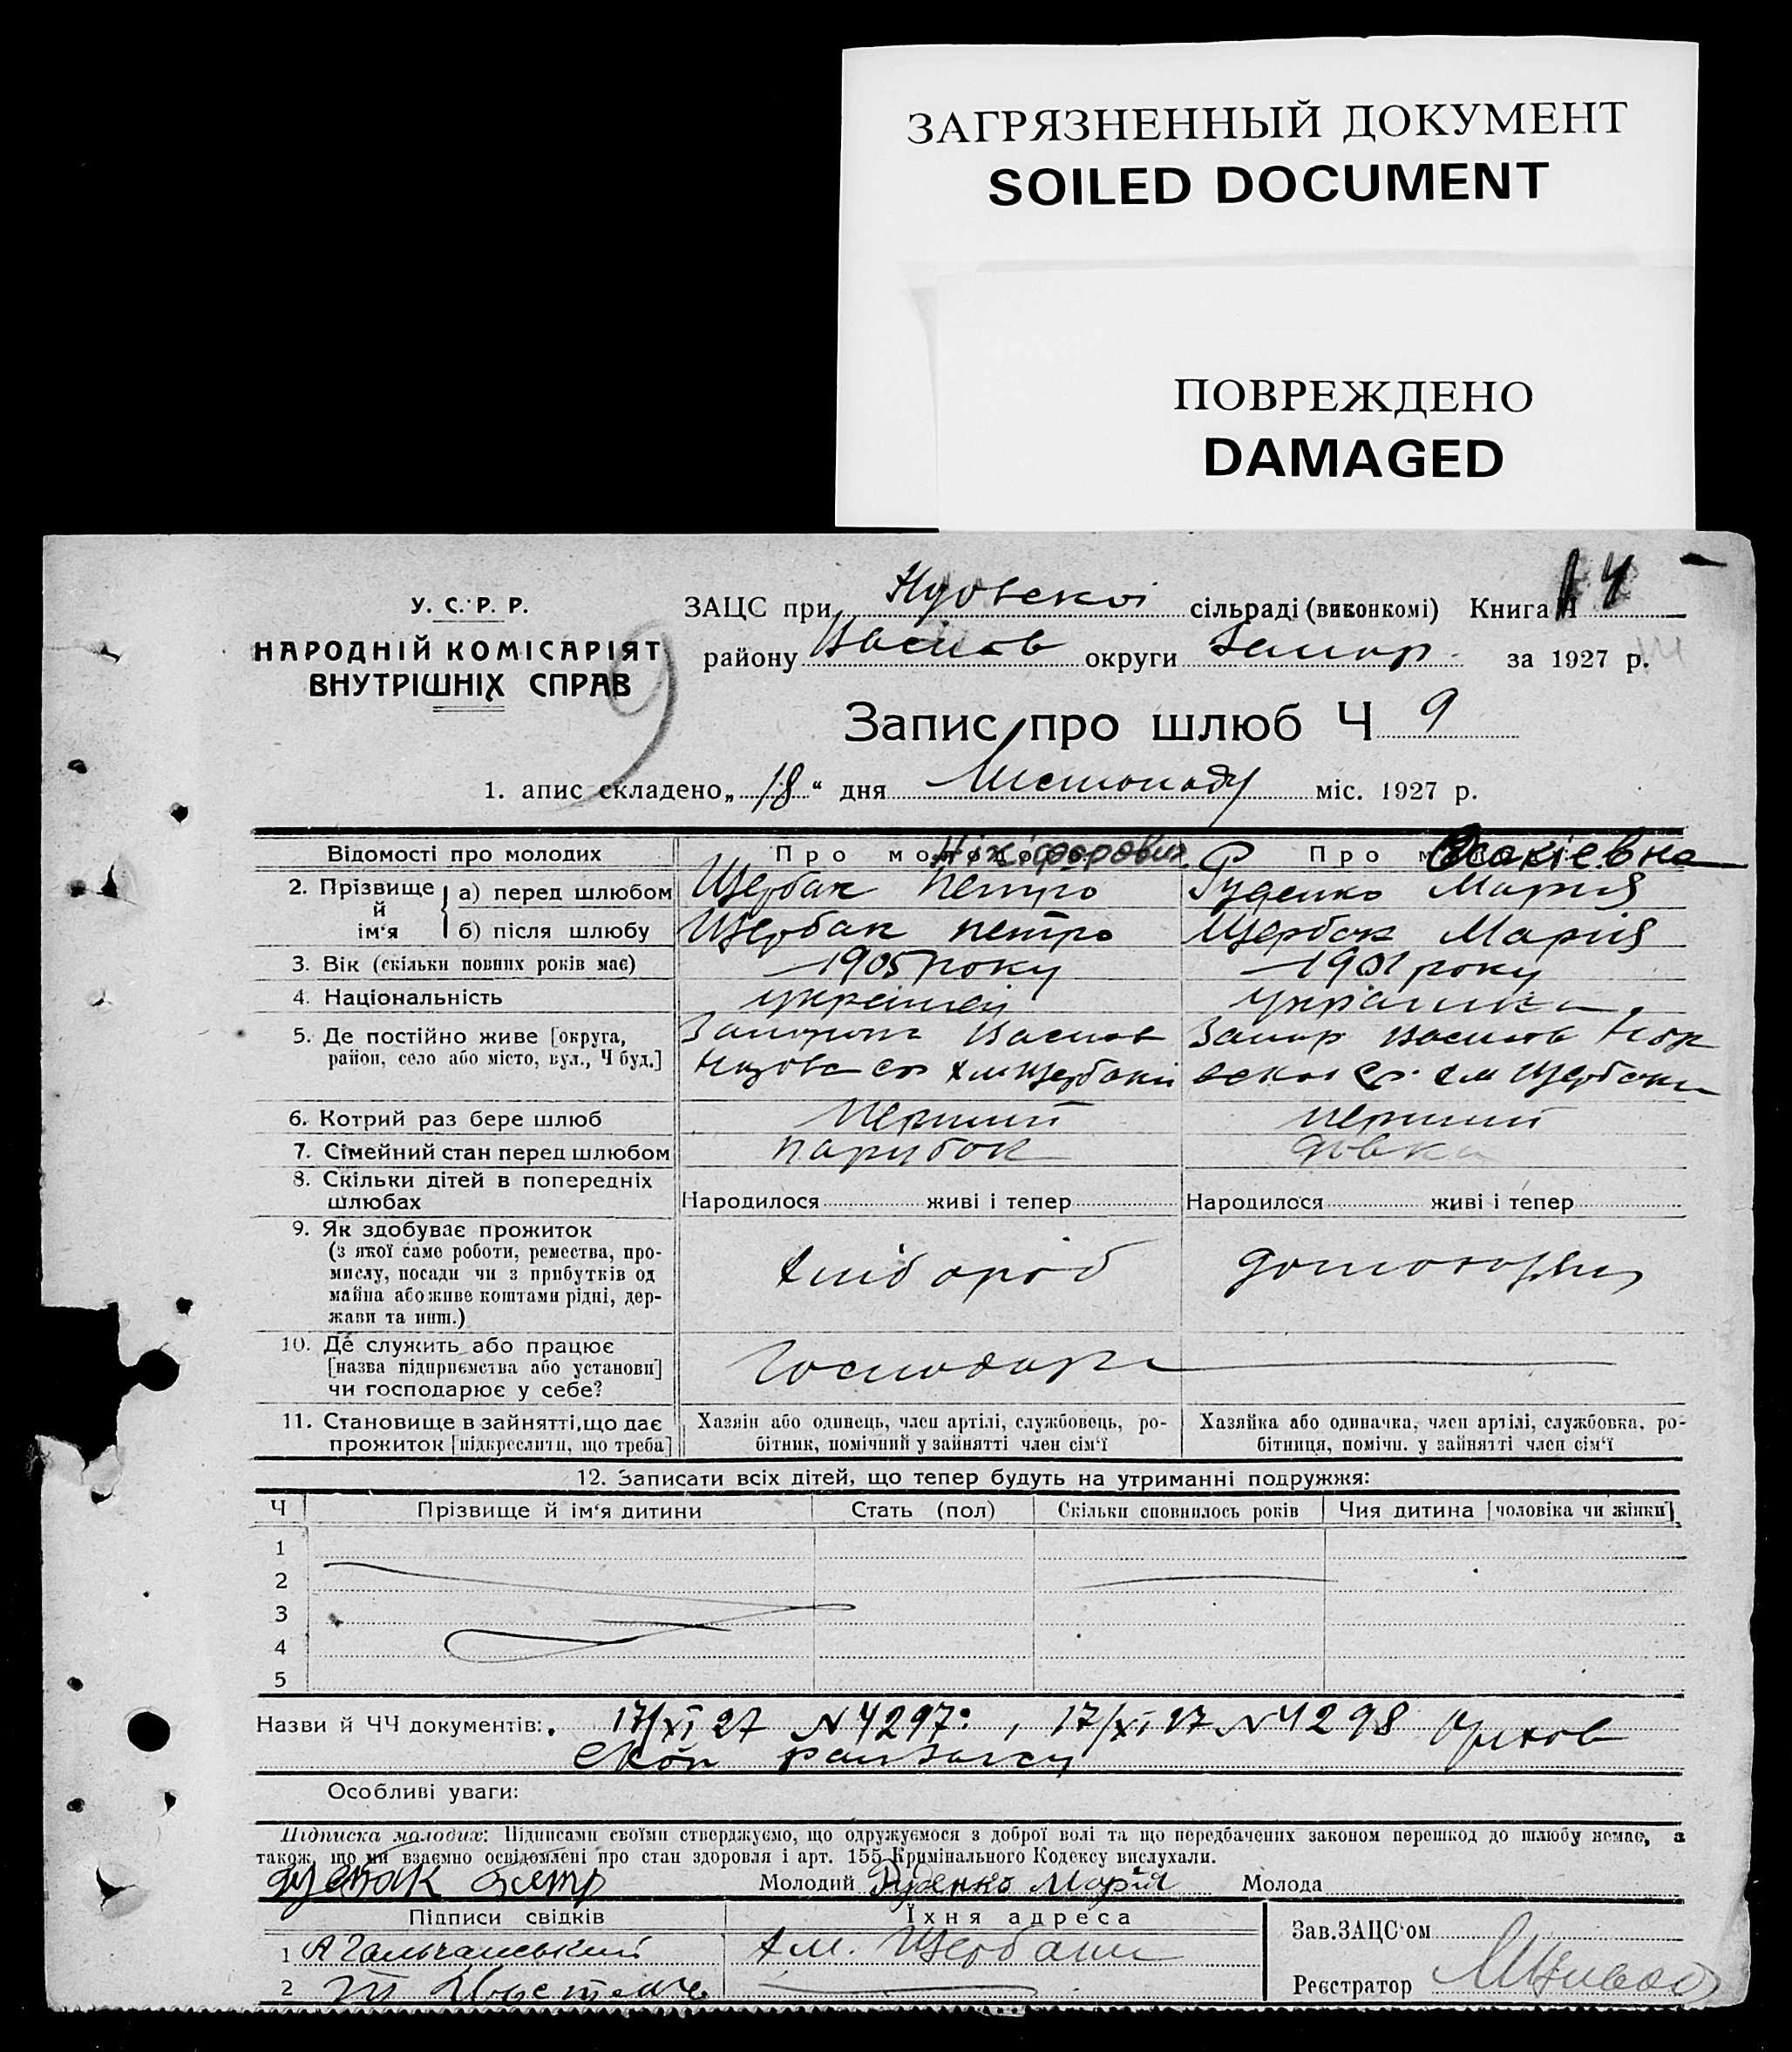 ЗАГРЯЗНЕННЫЙ ДОКУМЕНТ
SOILED DOCUMENT
ПОВРЕЖДЕНО
DAMAGED
У. С. Р. Р.
НАРОДНІЙ КОМІСАРІЯТ
ВНУТРІШНІХ СПРАВ
9
ЗАЦС при сільраді (виконкомі) Книга Ч 4
району Васил округи Запор. за 1927 р.
Запис про шлюб Ч 9
1. апис складено „18“ дня Листопаду міс. 1927 р.
Відомості про молодих Про молодого Нікіфорович Про м
2. Прізвище й ім‘я а) перед шлюбом Щербак Петро Руденко Марія
б) після шлюбу Щербак Петро Щербак Марія
3. Вік (скільки повних років має) 1905 року 1901 року
4. Національність українець українка
5. Де постійно живе [округа, район, село або місто, вул., Ч буд.]
6. Котрий раз бере шлюб перший перший
7. Сімейний стан перед шлюбом парубок дівка
8. Скільки дітей в попередніх шлюбах Народилося живі і тепер Народилося живі і тепер
9. Як здобуває прожиток
(з якої саме роботи, ремества, про-
мислу, посади чи з прибутків од
майна або живе коштами рідні, дер-
жави та инш.)
хлібороб
10. Де служить або працює
[назва підприємства або установи]
чи господарює у себе?
господарь
11. Становище в зайнятті, що дає
прожиток [підкреслити, що треба]
Хазяін або одинець, член артілі, службовець, ро-
бітник, помічний у зайнятті член сім‘ї
Хазяйка або одиначка, член артілі, службовка, ро-
бітниця, помічн. у зайнятті член сім‘ї
12. Записати всіх дітей, що тепер будуть на утриманні подружжя:
Ч Прізвище й ім‘я дитини Стать (пол) Скільки сповнилось років Чия дитина [чоловіка чи жінки]
1
2
3
4
5
Назви й ЧЧ документів: 17/XI 27 N 4297 , 17/XI 27 N 4298
Особливі уваги:
Підписка молодих: Підписами своїми стверджуємо, що одружуємося з доброї волі та що передбачених законом перешкод до шлюбу немає, а
також, що ми взаємно освідомлені про стан здоровля і арт. 155 Кримінального Кодексу вислухали.
Молодий Руденко Марія Молода
Підписи свідків Їхня адреса
1 А Гальчанський хут. Щербаки
2
Зав.ЗАЦС‘ом
Реєстратор